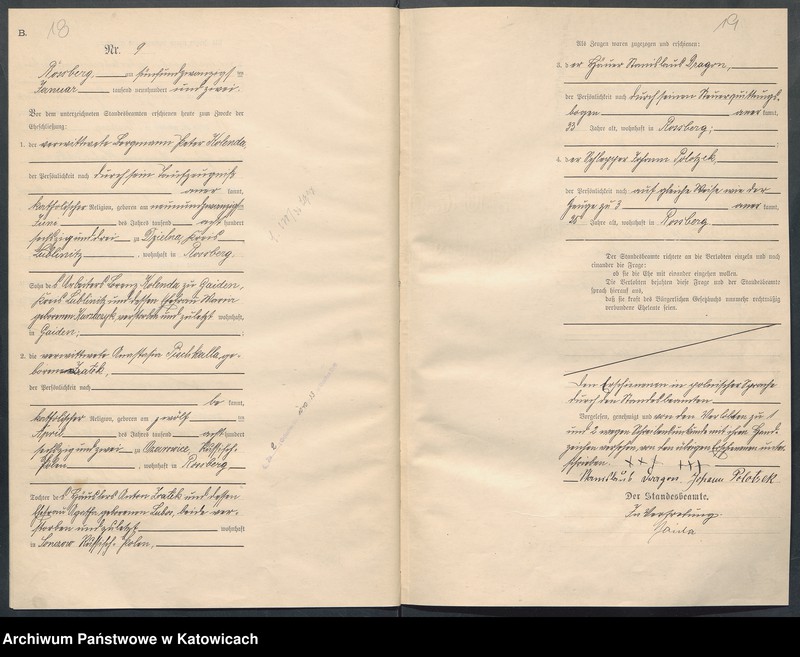 B.
18
Nr. 9
Rossberg, am fünfundzwanzigs ten
Januar tausend neunhundert und zwei.
Vor dem unterzeichneten Standesbeamten erschienen heute zum Zwecke der
Eheschließung:
1. der verwittwete Bergmann Peter Kolenda,
der Persönlichkeit nach durch sein Taufzeugniß
aner kannt,
katholischer Religion, geboren am neunundzwanzigs ten
Juni des Jahres tausend acht hundert
sechzig und drei zu Dzielna, Kreis
Lublinitz, wohnhaft in Rossberg.
Sohn des Arbeiters Lorenz Kolenda zu Gaiden,
Kreis Lublinitz und dessen Ehefrau Maria
geborenen verstorben und zuletzt wohnhaft
in Gaiden,
2. die verwittwete Anastasia Puchkalla ge-
borene Zralek,
der Persönlichkeit nach
be kannt,
katholischer Religion, geboren am zwölf ten
April des Jahres tausend acht hundert
sechzig und zwei zu Russisch-
Polen, wohnhaft in Rossberg
Tochter des Häuslers Anton Zralek und dessen
Ehefrau Agatha geborenen Lubos, beide ver-
storben und zuletzt wohnhaft
in Russisch-Polen,
19
Als Zeugen waren zugezogen und erschienen:
3. der Häuer Stanislaus Dragon,
der Persönlichkeit nach durch seinen Steuerquittungs-
bogen aner kannt,
33 Jahre alt, wohnhaft in Rossberg;
4. der Schlepper Johann Polotzek,
der Persönlichkeit nach auf gleiche Weise wie der
Zeuge zu 3 aner kannt,
Jahre alt, wohnhaft in Rossberg.
Der Standesbeamte richtete an die Verlobten einzeln und nach
einander die Frage:
ob sie die Ehe mit einander eingehen wollen.
Die Verlobten bejahten diese Frage und der Standesbeamte
sprach hierauf aus,
daß sie kraft des Bürgerlichen Gesetzbuchs nunmehr rechtmäßig
verbundene Eheleute seien.
Den Erschienenen in polnischer Sprache
durch den Standesbeamten
Vorgelesen, genehmigt und von den Verlobten zu 1
und 2 wegen Schreibensunkunde mit ihren Hand-
zeichen versehen, von den übrigen Erschienenen unter-
schrieben. +++ +++
Stanislaus Dragon, Johann Polotzek
Der Standesbeamte.
In Vertretung.
Gaida
Archiwum Państwowe w Katowicach